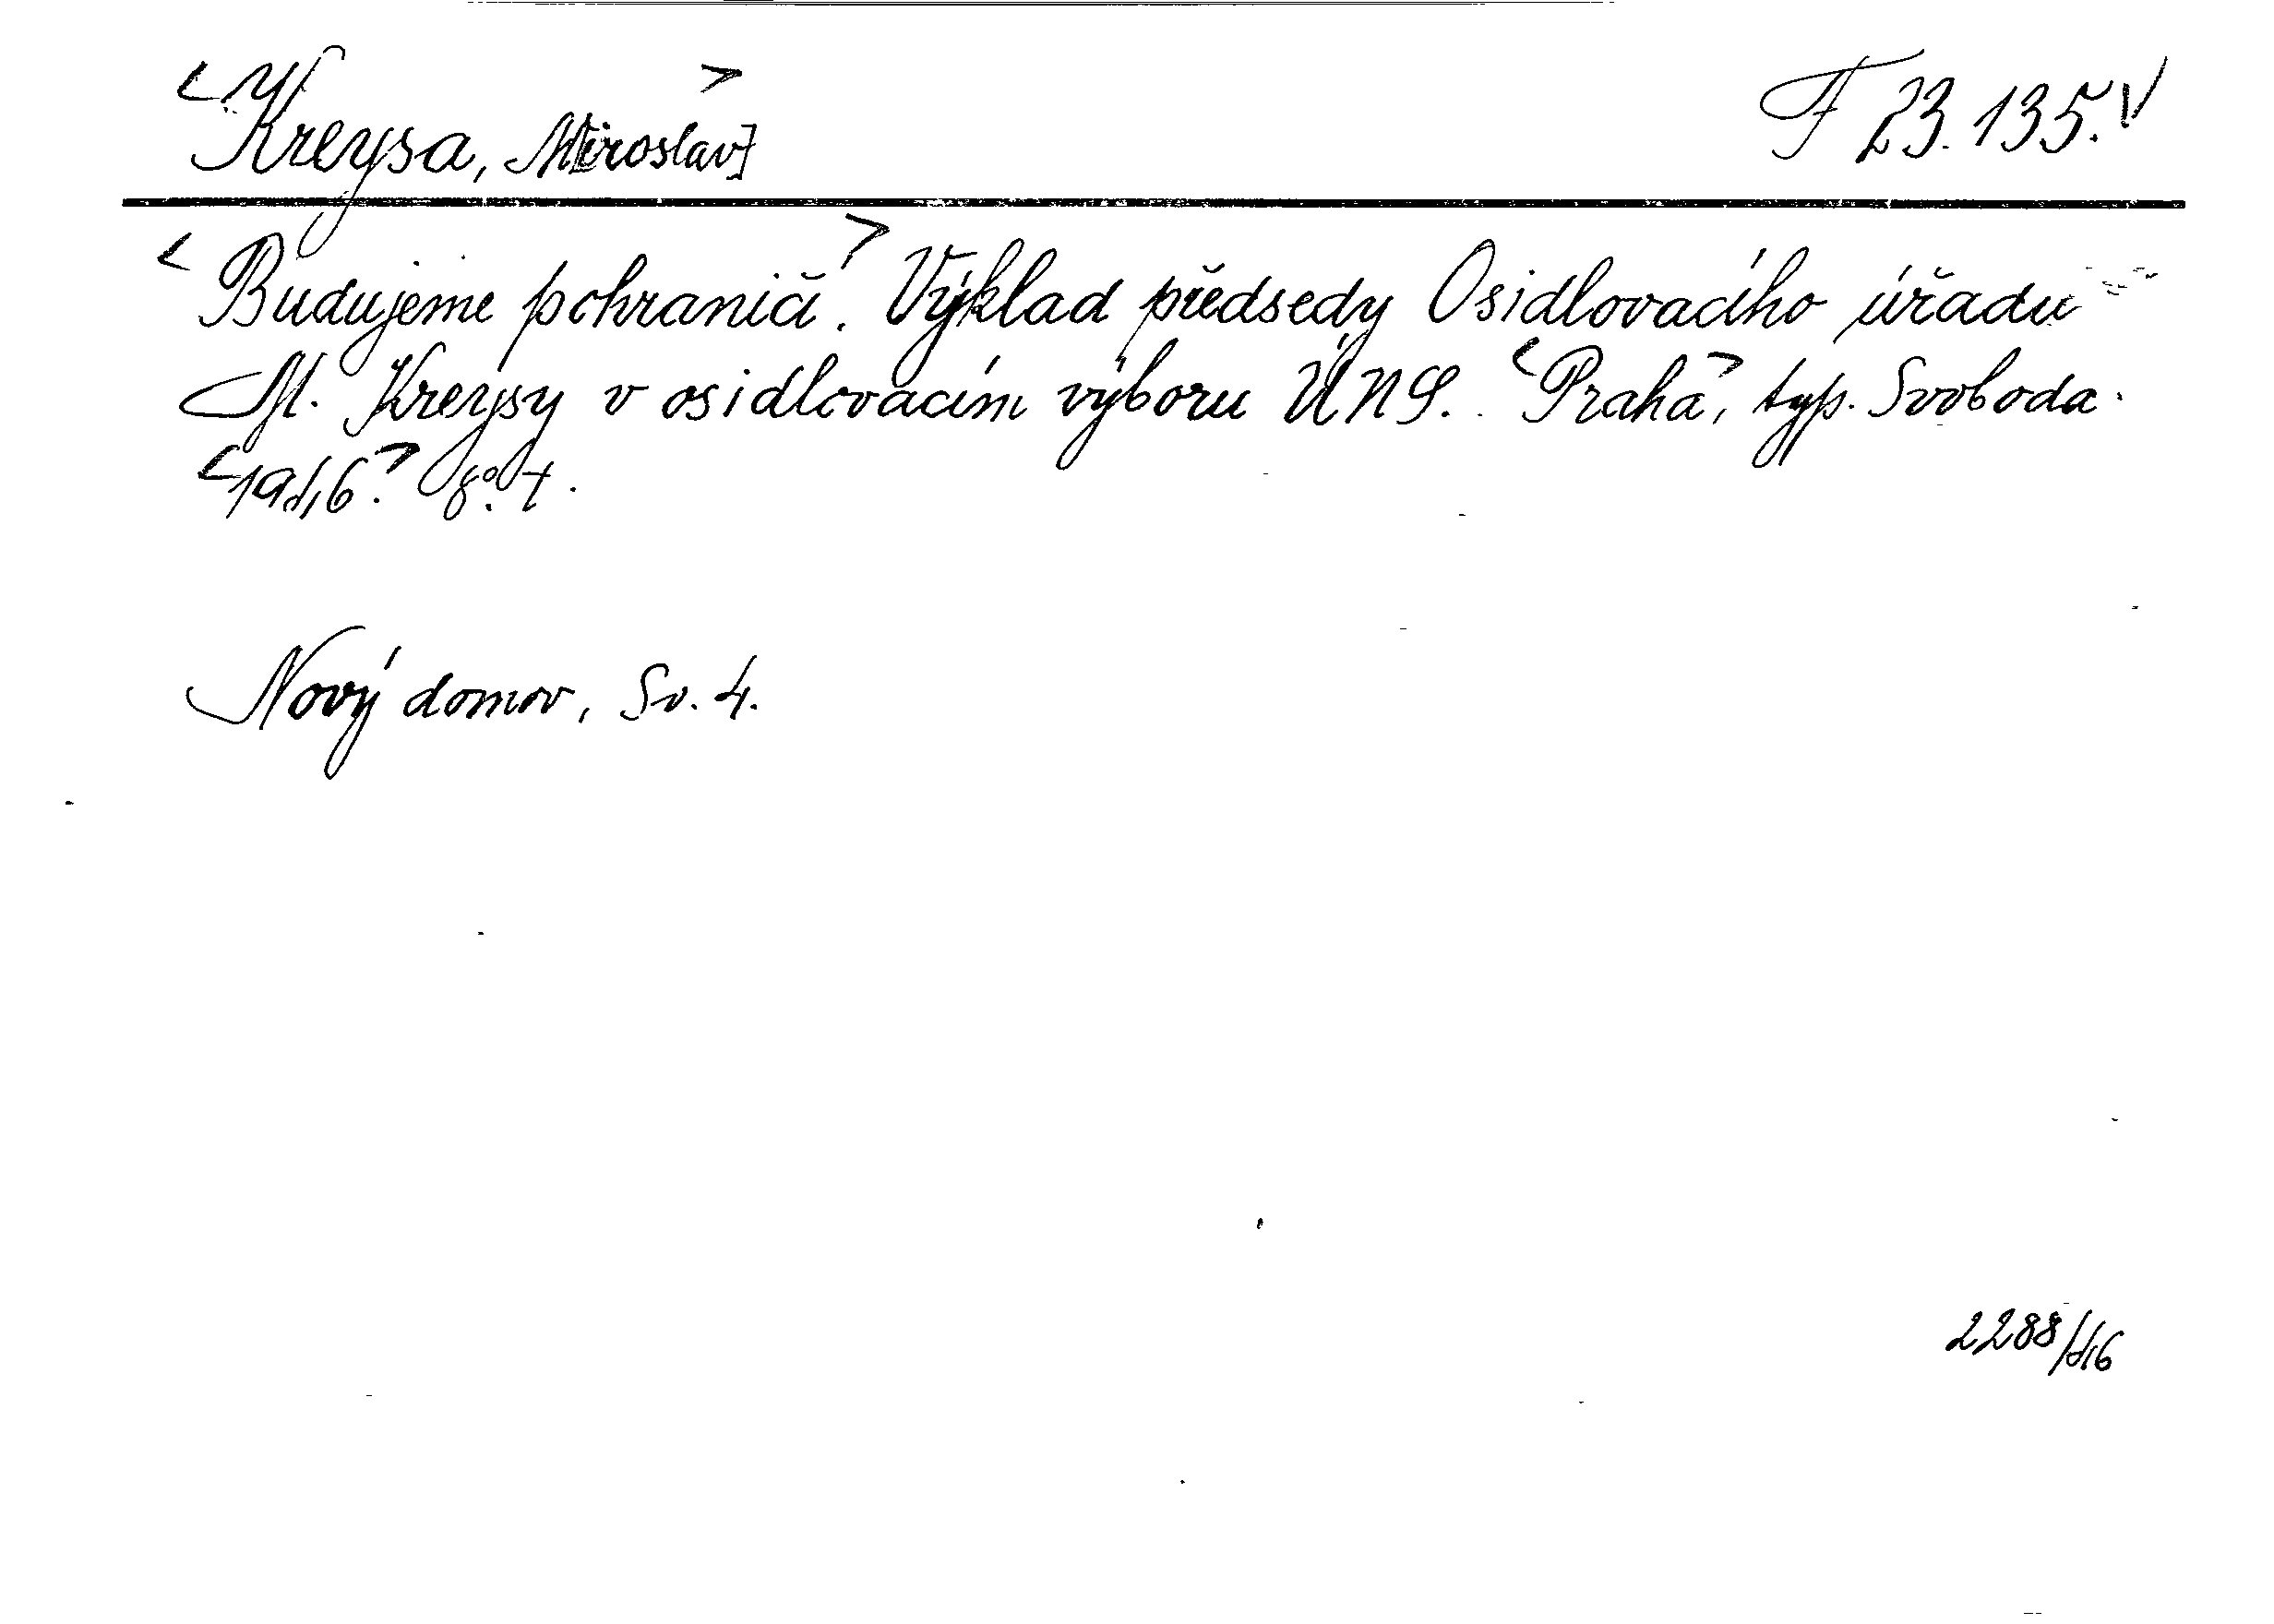 <Kreysa, M[iroslav]> F 23.135.√
<Budujeme pohraničí.> Výklad předsedy Osidlovacího úřadu
M. Kreysy v osidlovacím výboru ÚNS. <Praha>, typ. Svoboda.
<1946.> 8°. t.
Nový domov, Sv. 4.
2288/46